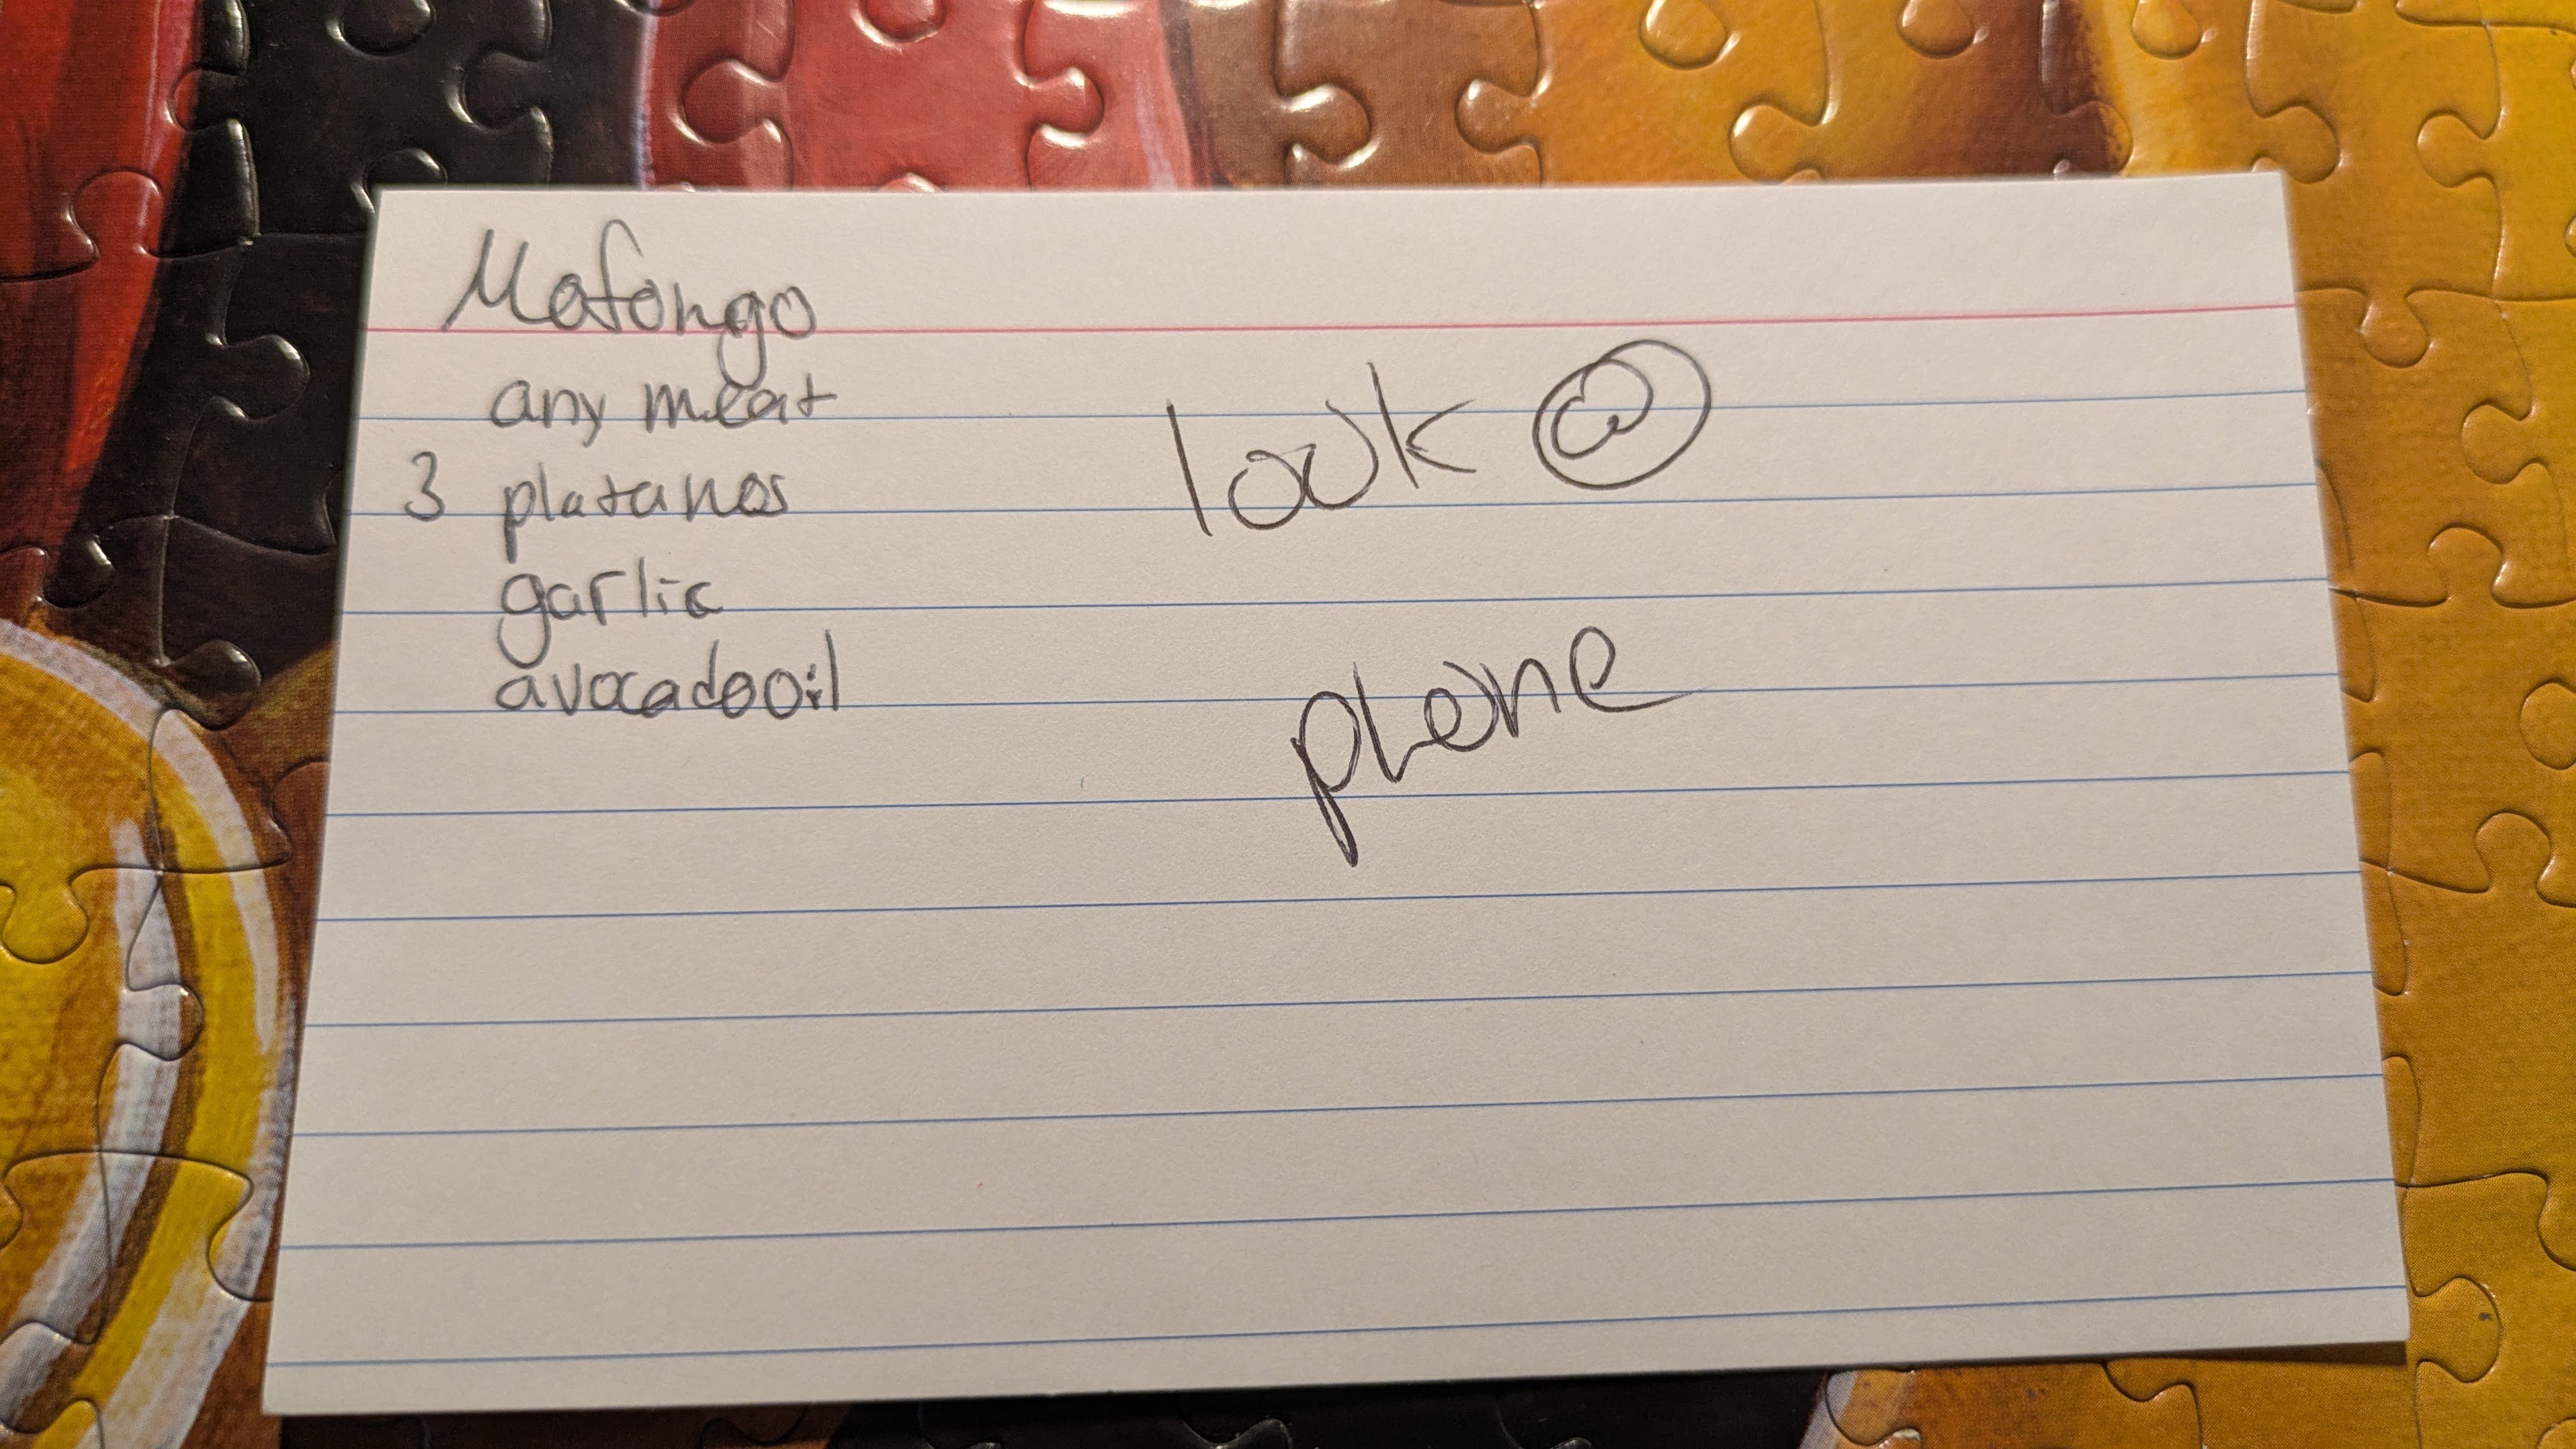 Mofongo
any meat
3 platanos
garlic
avocadooil
look @
phone